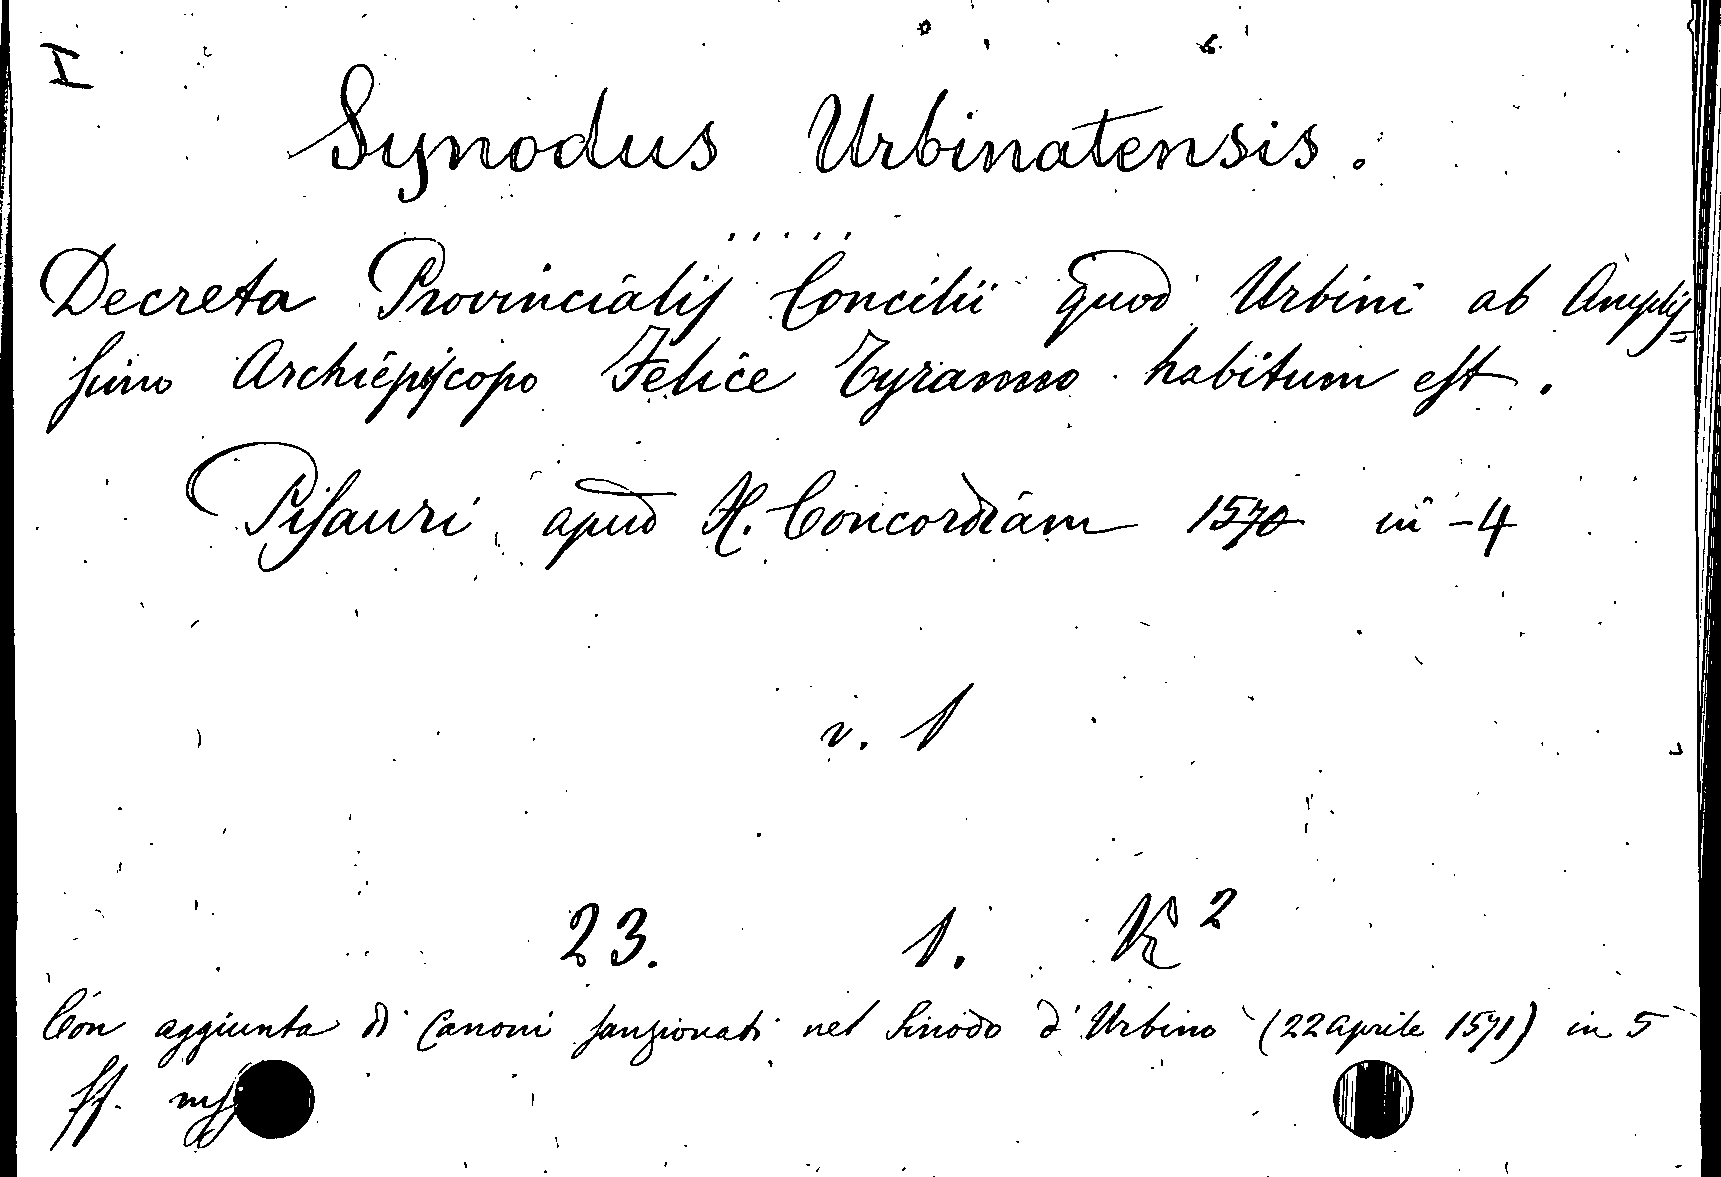 I
Synodus Urbinatensis.
.....
Decreta Provincialis Concilii quod Urbini ab Amplis=
simo Archiepiscopo Felice Tyranno habitum est.
Pisauri apud H. Concordiam 1570 in-4
v. 1
23. 1. K²
Con aggiunta di Canoni sanzionati nel Sinodo d'Urbino (22 aprile 1571) in 5
ff. mss